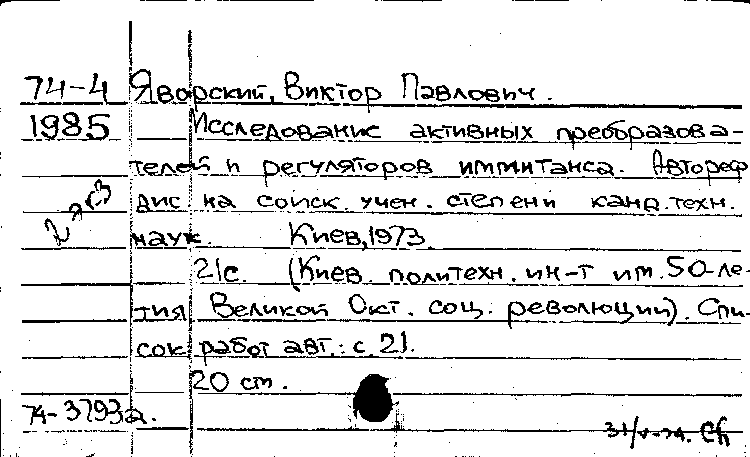 74-4 Яворский, Виктор Павлович.
1985 Исследование активных преобразова-
телей и регуляторов иммитанса. Автореф
дис на соиск. учен. степени канд. техн.
наук. Киев, 1973.
21с. (Киев. политехн. ин-т им. 50-ле-
тия Великой Окт. соц. революции). Спи-
сок работ авт.: с. 21.
20 см.
74-3793а.